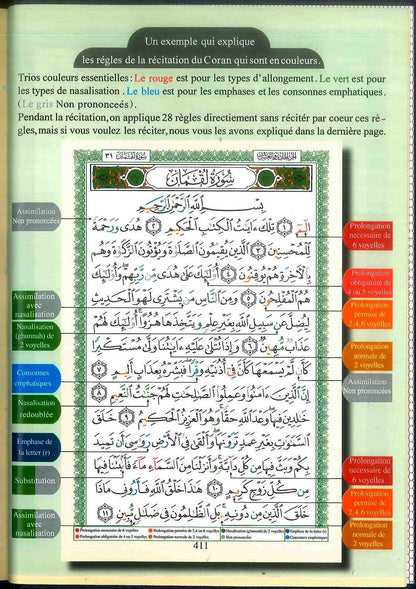 Un exemple qui explique
les régles de la récitation du Coran qui sont en couleurs.
Trios couleurs essentielles : Le rouge est pour les types d'allongement. Le vert est pour
les types de nasalisation . Le bleu est pour les emphases et les consonnes emphatiques.
(Le gris Non prononceés) .
Pendant la récitation, on applique 28 règles directiement sans récitér par coeur ces ré-
gles, mais si vous voulez les réciter, nous vous les avons expliqué dans la dernière page.
سُورَةُ لُقْمَان ٣١
سُورَةُ لُقْمَانَ
بِسْمِ اللَّهِ الرَّحْمَٰنِ الرَّحِيمِ
الٓمٓ ١ تِلْكَ ءَايَٰتُ ٱلْكِتَٰبِ ٱلْحَكِيمِ ٢ هُدًى وَرَحْمَةً
لِّلْمُحْسِنِينَ ٣ ٱلَّذِينَ يُقِيمُونَ ٱلصَّلَوٰةَ وَيُؤْتُونَ ٱلزَّكَوٰةَ وَهُم
بِٱلْءَاخِرَةِ هُمْ يُوقِنُونَ ٤ أُو۟لَٰٓئِكَ عَلَىٰ هُدًى مِّن رَّبِّهِمْ وَأُو۟لَٰٓئِكَ
هُمُ ٱلْمُفْلِحُونَ ٥ وَمِنَ ٱلنَّاسِ مَن يَشْتَرِى لَهْوَ ٱلْحَدِيثِ
لِيُضِلَّ عَن سَبِيلِ ٱللَّهِ بِغَيْرِ عِلْمٍ وَيَتَّخِذَهَا هُزُوًا أُو۟لَٰٓئِكَ لَهُمْ
عَذَابٌ مُّهِينٌ ٦ وَإِذَا تُتْلَىٰ عَلَيْهِ ءَايَٰتُنَا وَلَّىٰ مُسْتَكْبِرًا
كَأَن لَّمْ يَسْمَعْهَا كَأَنَّ فِىٓ أُذُنَيْهِ وَقْرًا فَبَشِّرْهُ بِعَذَابٍ أَلِيمٍ ٧
إِنَّ ٱلَّذِينَ ءَامَنُوا۟ وَعَمِلُوا۟ ٱلصَّٰلِحَٰتِ لَهُمْ جَنَّٰتُ ٱلنَّعِيمِ ٨
خَٰلِدِينَ فِيهَا وَعْدَ ٱللَّهِ حَقًّا وَهُوَ ٱلْعَزِيزُ ٱلْحَكِيمُ ٩ خَلَقَ
ٱلسَّمَٰوَٰتِ بِغَيْرِ عَمَدٍ تَرَوْنَهَا وَأَلْقَىٰ فِى ٱلْأَرْضِ رَوَٰسِىَ أَن تَمِيدَ
بِكُمْ وَبَثَّ فِيهَا مِن كُلِّ دَآبَّةٍ وَأَنزَلْنَا مِنَ ٱلسَّمَآءِ مَآءً فَأَنۢبَتْنَا فِيهَا
مِن كُلِّ زَوْجٍ كَرِيمٍ ١٠ هَٰذَا خَلْقُ ٱللَّهِ فَأَرُونِى مَاذَا
خَلَقَ ٱلَّذِينَ مِن دُونِهِۦ بَلِ ٱلظَّٰلِمُونَ فِى ضَلَٰلٍ مُّبِينٍ ١١
Assimilation
Non prononcées
Assimilation
avec
nasalisation
Nasalisation
(ghunnah) de
2 voyelles
Consonnes
emphatiques
Nasalisation
redoublée
Emphase de
la letter (r)
Substitution
Assimilation
avec
nasalisation
Prolongation
necessaire de
6 voyelles
Prolongation
obligatoire de
4 ou 5 voyelles
Prolongation
permise de
2,4,6 voyelles
Prolongation
normale de
2 voyelles
Assimilation
Non prononcées
Prolongation
necessaire de
6 voyelles
Prolongation
permise de
2,4,6 voyelles
Prolongation
normale de
2 voyelles
411